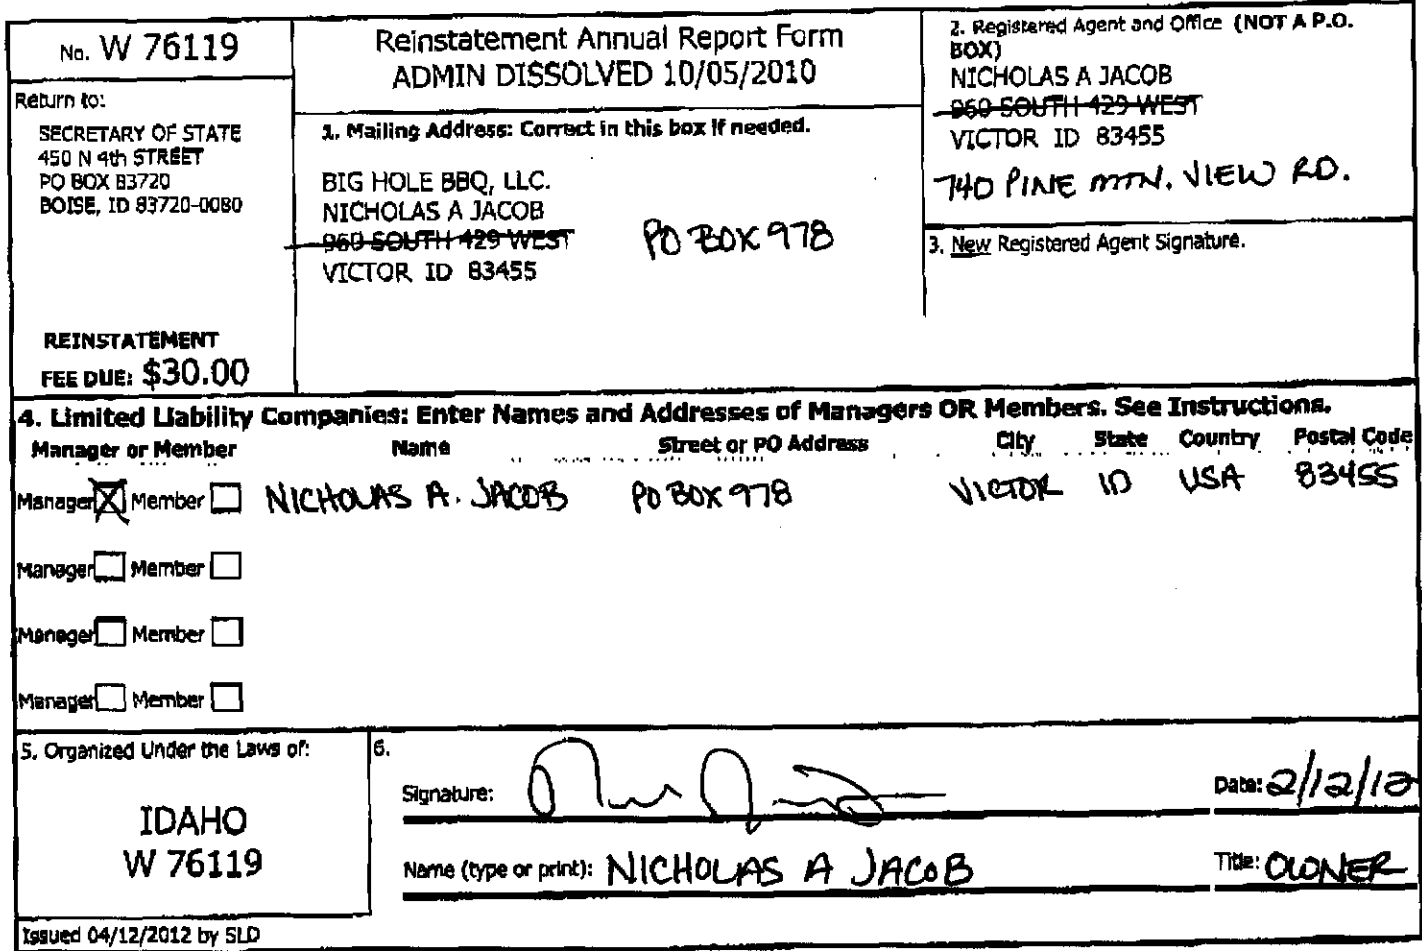 No. W 76119
Return to:
SECRETARY OF STATE
450 N 4th STREET
PO BOX 83720
BOISE, ID 83720-0080
REINSTATEMENT
FEE DUE: $30.00
Reinstatement Annual Report Form
ADMIN DISSOLVED 10/05/2010
1. Mailing Address: Correct in this box if needed.
BIG HOLE BBQ, LLC.
NICHOLAS A JACOB
960 SOUTH 429 WEST PO BOX 978
VICTOR ID 83455
2. Registered Agent and Office (NOT A P.O.
BOX)
NICHOLAS A JACOB
960 SOUTH 429 WEST
VICTOR ID 83455
740 PINE MTN. VIEW RD.
3. New Registered Agent Signature.
4. Limited Liability Companies: Enter Names and Addresses of Managers OR Members. See Instructions.
Manager or Member Name Street or PO Address City State Country Postal Code
Manager Member NICHOLAS A. JACOB PO BOX 978 VICTOR ID USA 83455
Manager Member
Manager Member
Manager Member
5. Organized Under the Laws of:
IDAHO
W 76119
6.
Signature: Date: 2/12/12
Name (type or print): NICHOLAS A JACOB Title: OWNER
Issued 04/12/2012 by SLD